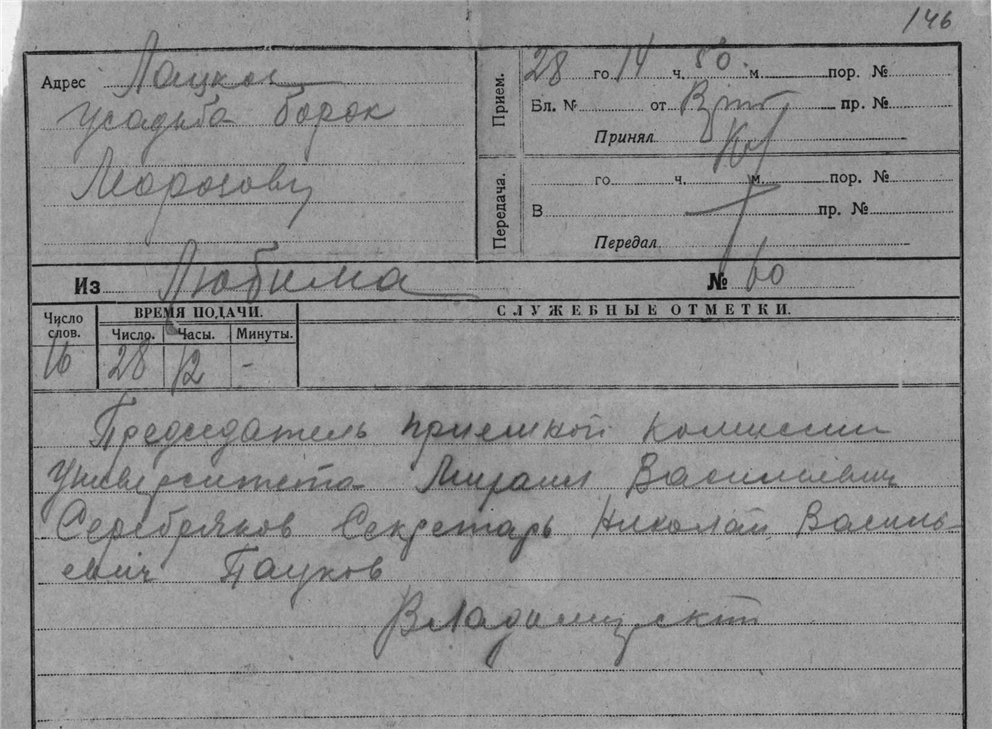 146
Адрес Лацкое
усадьба борок
Морозову
Прием.
28 го 14 ч. 50 м пор. №
Бл. № от пр. №
Принял
Передача.
го ч. м пор. №
В пр. №
Передал
Из Любима № 60
Число слов.
ВРЕМЯ ПОДАЧИ.
Число. Часы. Минуты.
СЛУЖЕБНЫЕ ОТМЕТКИ.
16 28 12 -
Председатель приемной комиссии
Университета Михаил Васильевич
Серебряков Секретарь Николай Василь-
евич Пауков